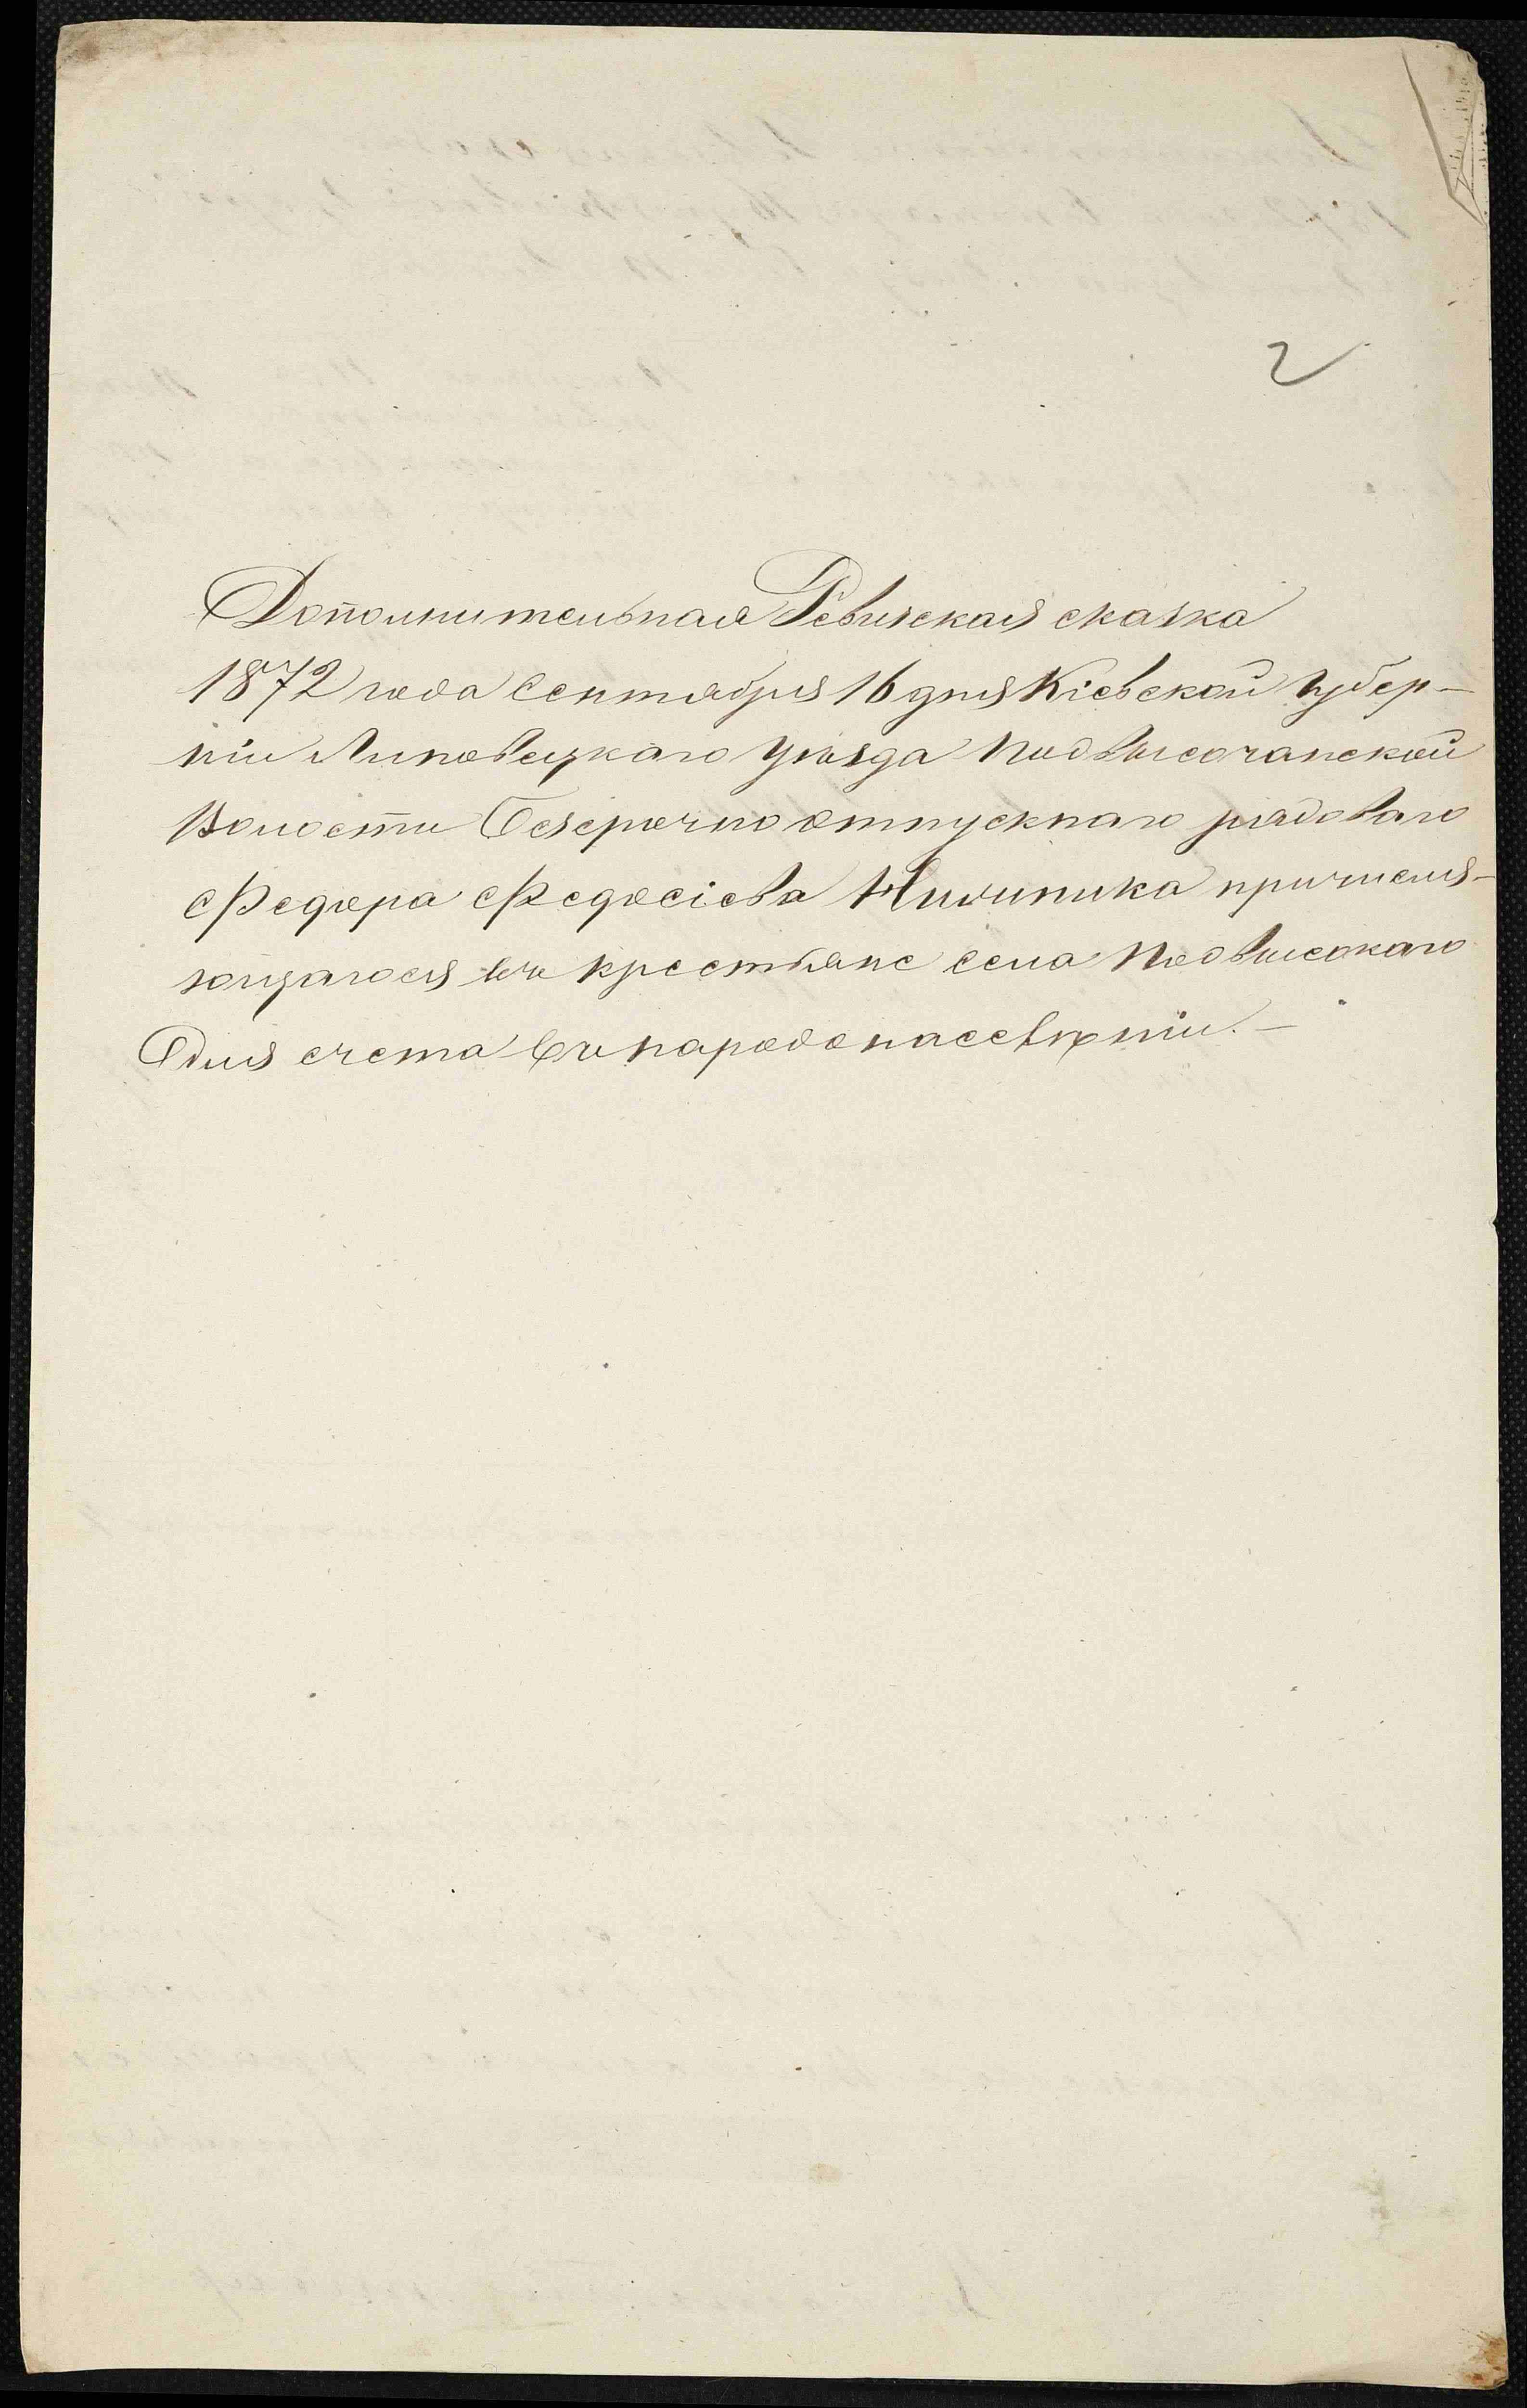 2
Дополнительная Ревизская сказка
1872 года Сентября 16 дня Кіевской губер-
ніи Липовецкаго уѣзда Подвысочанской
Волости Безсрочно отпускнаго рядоваго
Федора Федосіева причисля-
ющагося въ крестьяне села Подвысокаго
Для счета въ народонаселеніи.-